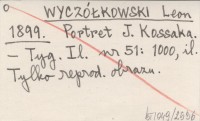 WYCZÓŁKOWSKI Leon
1899. Portret J. Kossaka.
– Tyg. Il. nr 51: 1000, il.
Tylko reprod. obrazu.